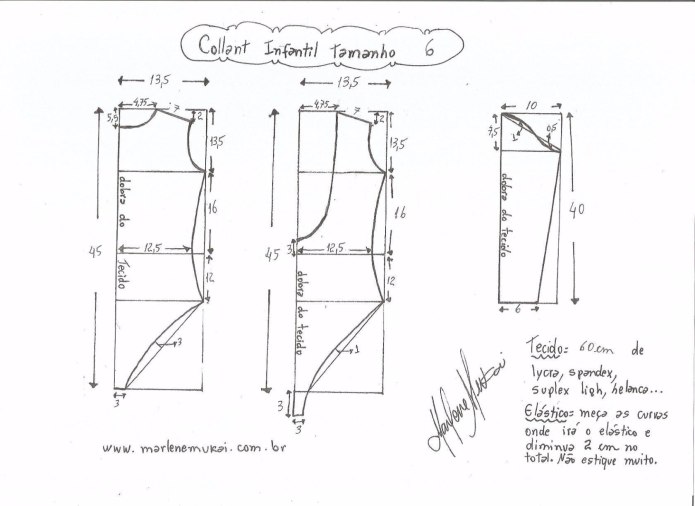 Collant Infantil Tamanho 6
13,5
4,75
7
2
5,5
13,5
16
45
dobra do Tecido
12,5
12
3
3
13,5
4,75
7
2
13,5
16
3
45
12,5
dobra do tecido
12
1
3
3
10
7,5
1
0,5
dobra do tecido
40
6
Tecido: 60cm de
lycra, spandex,
suplex ligh, helanca...
Elástico: meça as curvas
onde irá o elástico e
diminua 2 cm no
total. Não estique muito.
www.marlenemukai.com.br